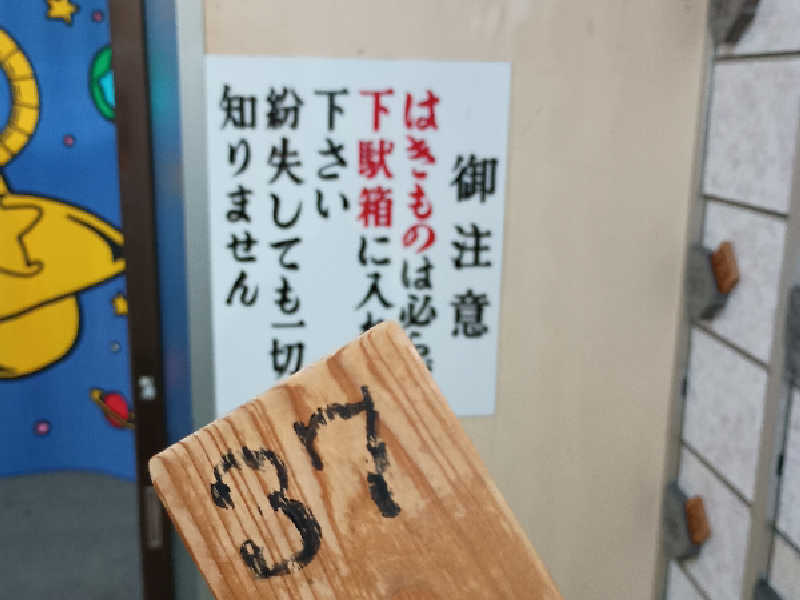 御注意
はきものは必
下駄箱に入
下さい
紛失しても一切
知りません
37